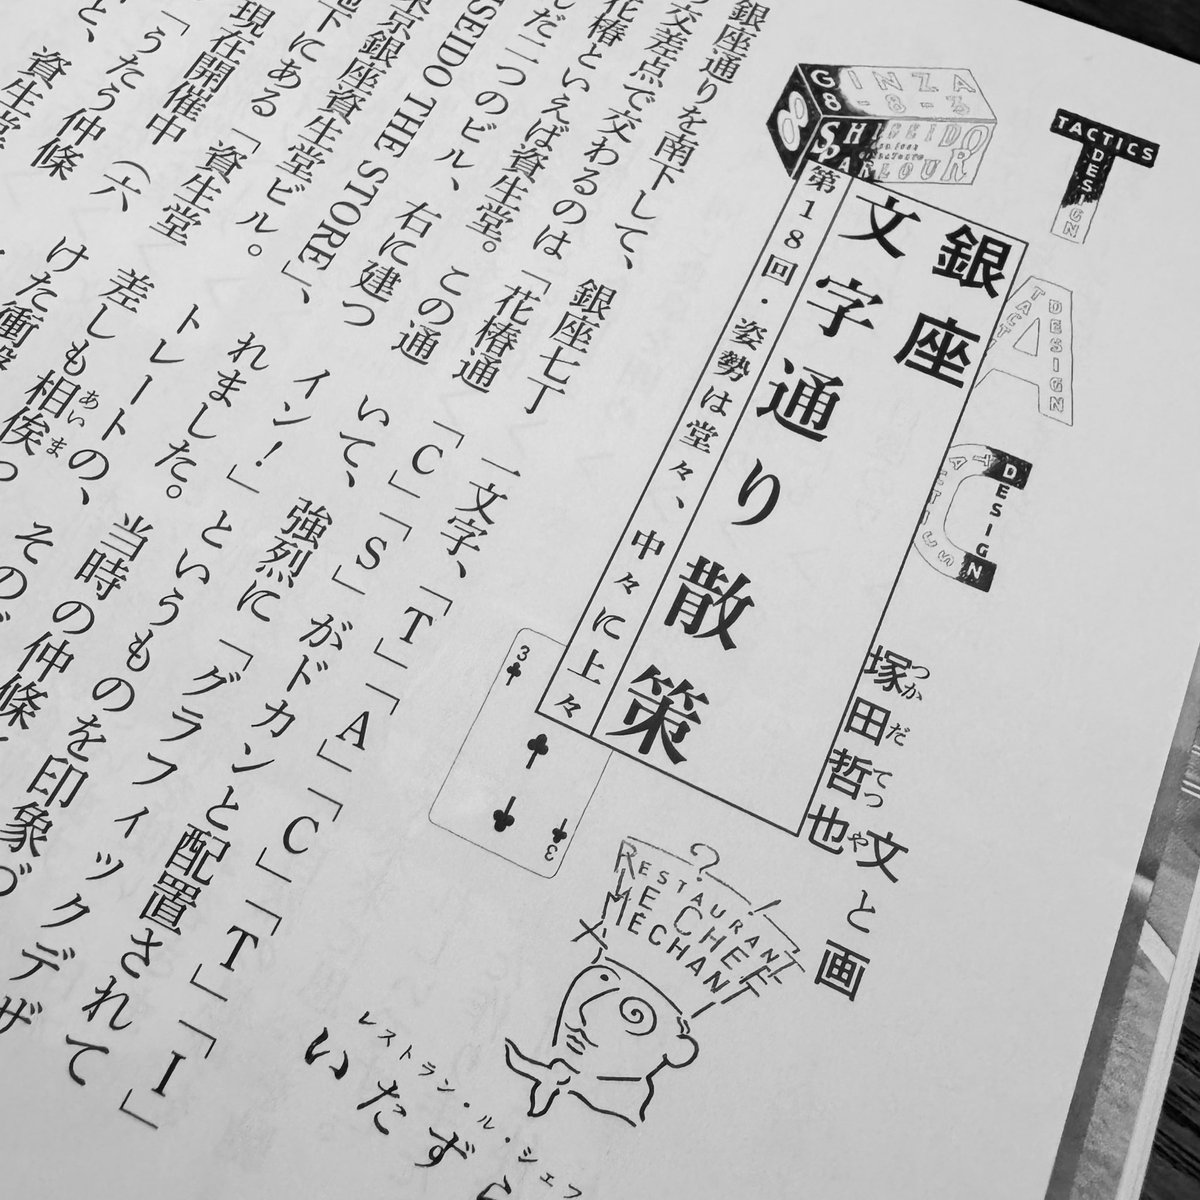 TACTICS
DESIGN
DESIGN
TACT
DESIGN
GINZA
8-8-3
SHISEIDO
PARLOUR
銀座
文字通り散策
第18回・姿勢は堂々、中々に上々
塚田哲也 文と画
つかだてつや
3
3
RESTAURANT
LE CHEF
MÉCHANT
レストラン・ル・シェフ
いたずら
銀座通りを南下して、銀座七丁
の交差点で交わるのは「花椿通
花椿といえば資生堂。この通
んだ二つのビル、右に建つ
SEIDO THE STORE」、
東京銀座資生堂ビル。
地下にある「資生堂
現在開催中（六
「うたう仲條
と、資生堂
一文字、「T」「A」「C」「T」「I」
「C」「S」がドカンと配置されて
いて、強烈に「グラフィックデザ
イン！」というものを印象づ
れました。当時の仲條
トレートの、その
差しも相俟っ
あいま
けた衝撃